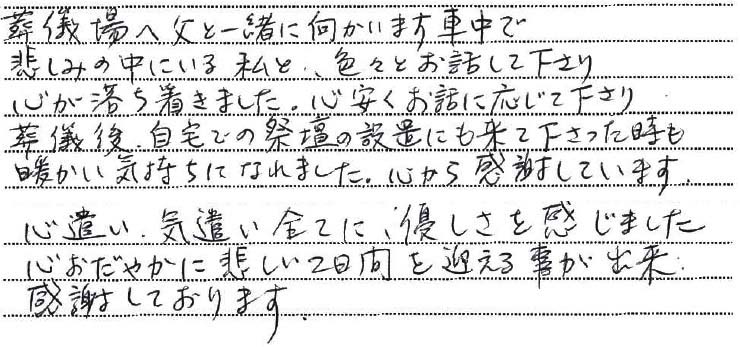 葬儀場へ父と一緒に向かいます車中で
悲しみの中にいる私と、色々とお話して下さり
心が落ち着きました。心安くお話に応じて下さり
葬儀後、自宅での祭壇の設置にも来て下さった時も
暖かい気持ちになれました。心から感謝しています。
心遣い、気遣い全てに、優しさを感じました
心おだやかに悲しい2日間を迎える事が出来
感謝しております。